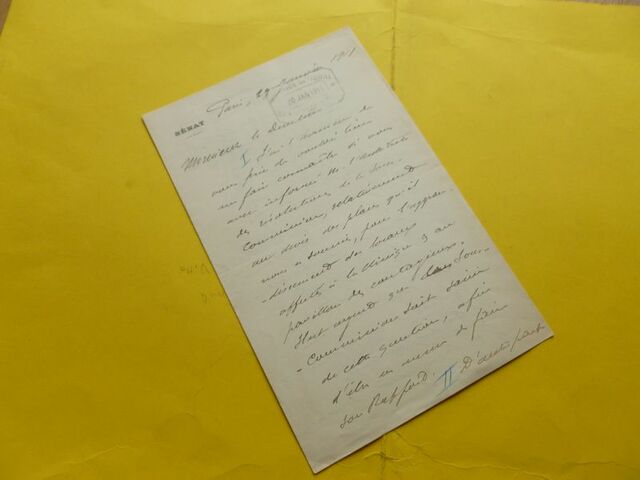 SÉNAT
Paris, 29 Janvier 1901
Monsieur le Directeur
I J'ai l'honneur de
vous prier de vouloir bien
me faire connaître si vous
avez informé M. l'architecte
des résolutions de la Sous-
Commission, relativement
au devis des plans qu'il
nous a soumis, pour l'agran-
-dissement des locaux
affectés à la clinique & au
pavillon des contagieux.
Il est urgent que la Sous-
-Commission soit saisie
de cette question, afin
d'être en mesure de faire
son Rapport. II D'autre part